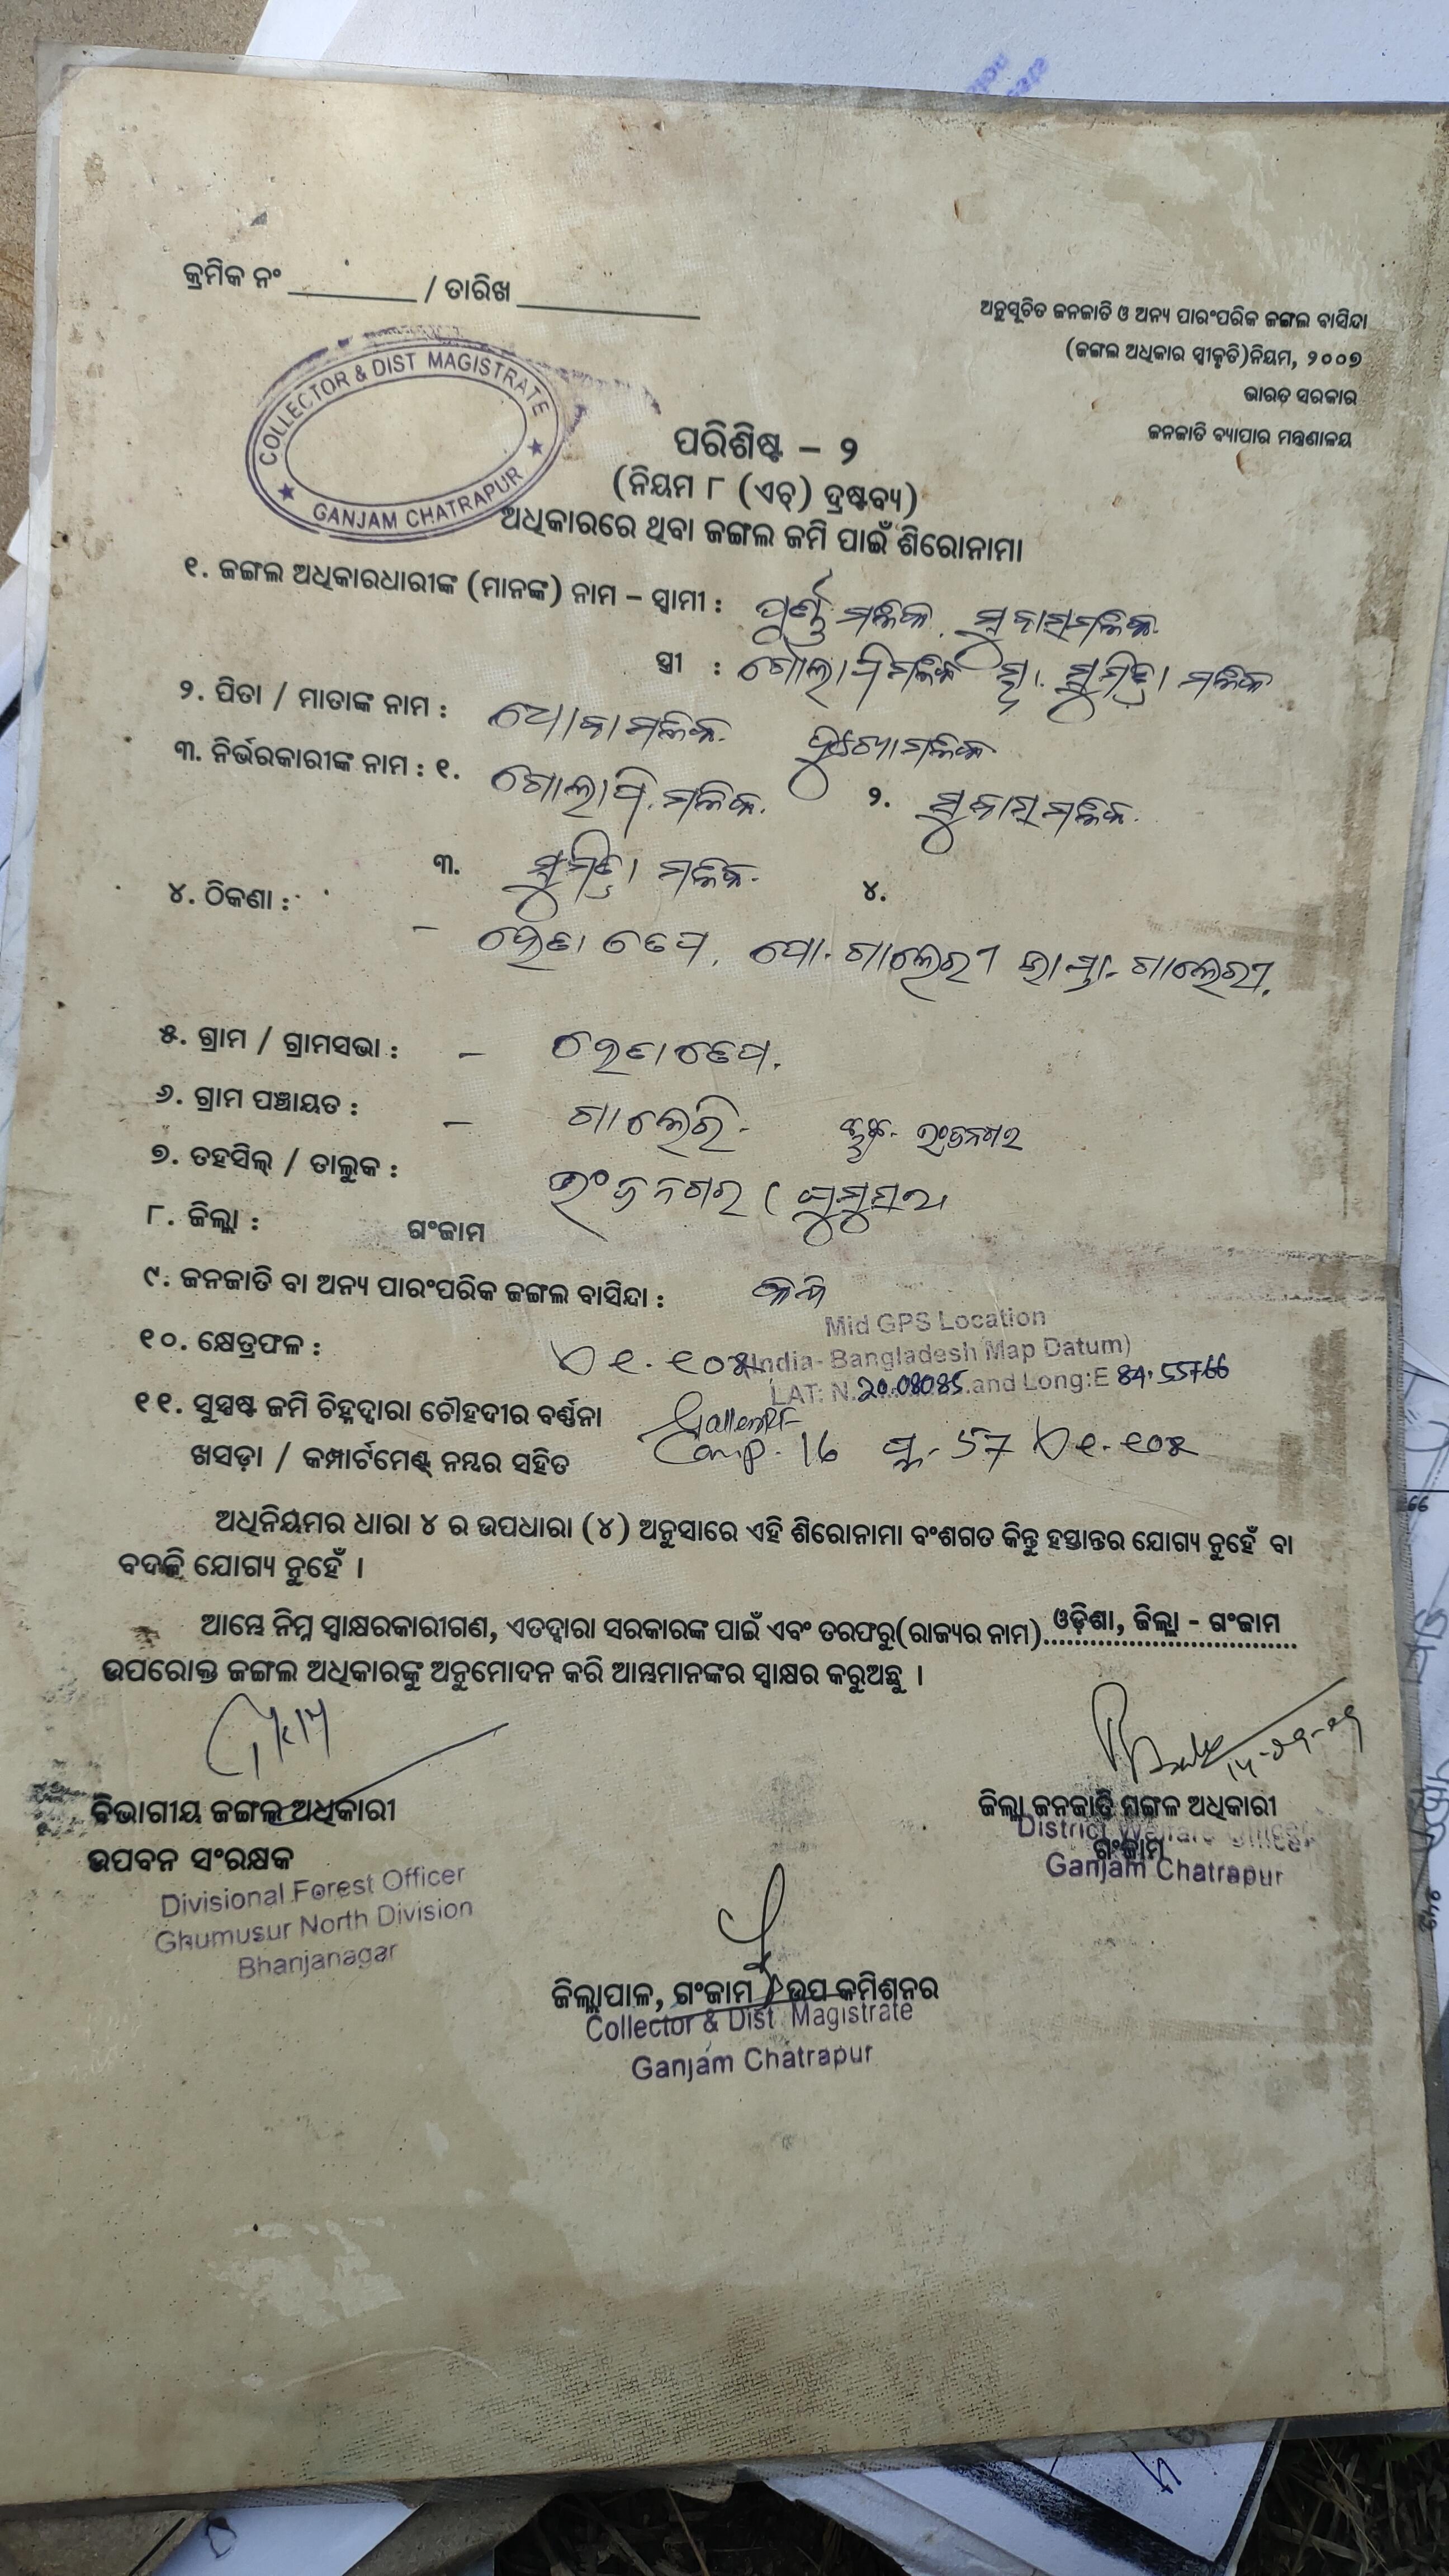 କ୍ରମିକ ନଂ / ତାରିଖ
ଅନୁସୂଚିତ ଜନଜାତି ଓ ଅନ୍ୟ ପାରଂପରିକ ଜଙ୍ଗଲ ବାସିନ୍ଦା
(ଜଙ୍ଗଲ ଅଧିକାର ସ୍ୱୀକୃତି)ନିୟମ, ୨୦୦୭
ଭାରତ ସରକାର
ଜନଜାତି ବ୍ୟାପାର ମନ୍ତ୍ରଣାଳୟ
COLLECTOR & DIST MAGISTRATE
★ GANJAM CHATRAPUR ★
ପରିଶିଷ୍ଟ – ୨
(ନିୟମ ୮ (ଏଚ୍) ଦ୍ରଷ୍ଟବ୍ୟ)
ଅଧିକାରରେ ଥିବା ଜଙ୍ଗଲ ଜମି ପାଇଁ ଶିରୋନାମା
୧. ଜଙ୍ଗଲ ଅଧିକାରଧାରୀଙ୍କ (ମାନଙ୍କ) ନାମ – ସ୍ୱାମୀ : ପୂର୍ଣ୍ଣ ମଳିକ. ସୁବାସ ମଳିକ.
ସ୍ତ୍ରୀ : ଗୌଲାପି ମଳିକ ସୁମିତ୍ରା ମଳିକ
୨. ପିତା / ମାତାଙ୍କ ନାମ : ମଳିକ. ମଳିକ
୩. ନିର୍ଭରକାରୀଙ୍କ ନାମ : ୧. ଗୋଲାପି. ମଳିକ. ୨. ସୁବାସ ମଳିକ.
୩. ସୁମିତ୍ରା ମଳିକ. ୪.
୪. ଠିକଣା : – ପୋ. ଗାଲେରୀ ଭାୟା. ଗାଲେରୀ.
୫. ଗ୍ରାମ / ଗ୍ରାମସଭା : –
୬. ଗ୍ରାମ ପଞ୍ଚାୟତ : – ଗାଲେରି - ଭଂଜନଗର
୭. ତହସିଲ୍ / ତାଲୁକ : ଭଂଜନଗର
୮. ଜିଲ୍ଲା : ଗଂଜାମ
୯. ଜନଜାତି ବା ଅନ୍ୟ ପାରଂପରିକ ଜଙ୍ଗଲ ବାସିନ୍ଦା : କନ୍ଧ
Mid GPS Location
୧୦. କ୍ଷେତ୍ରଫଳ :
(India- Bangladesh Map Datum)
LAT: N. 20.08085 and Long:E 84.55766
୧୧. ସୁସ୍ପଷ୍ଟ ଜମି ଚିହ୍ନଦ୍ୱାରା ଚୌହଦୀର ବର୍ଣ୍ଣନା
ଖସଡ଼ା / କମ୍ପାର୍ଟମେଣ୍ଟ୍ ନମ୍ବର ସହିତ Comp. 16 ପ୍ଲ. 57
ଅଧିନିୟମର ଧାରା ୪ ର ଉପଧାରା (୪) ଅନୁସାରେ ଏହି ଶିରୋନାମା ବଂଶଗତ କିନ୍ତୁ ହସ୍ତାନ୍ତର ଯୋଗ୍ୟ ନୁହେଁ ବା
ବଦଳି ଯୋଗ୍ୟ ନୁହେଁ ।
ଆମ୍ଭେ ନିମ୍ନ ସ୍ୱାକ୍ଷରକାରୀଗଣ, ଏତଦ୍ୱାରା ସରକାରଙ୍କ ପାଇଁ ଏବଂ ତରଫରୁ(ରାଜ୍ୟର ନାମ) ଓଡ଼ିଶା, ଜିଲ୍ଲା - ଗଂଜାମ
ଉପରୋକ୍ତ ଜଙ୍ଗଲ ଅଧିକାରଙ୍କୁ ଅନୁମୋଦନ କରି ଆମ୍ଭମାନଙ୍କର ସ୍ୱାକ୍ଷର କରୁଅଛୁ ।
ବିଭାଗୀୟ ଜଙ୍ଗଲ ଅଧିକାରୀ
ଉପବନ ସଂରକ୍ଷକ
Divisional Forest Officer
Ghumusur North Division
Bhanjanagar
ଜିଲ୍ଲା ଜନଜାତି ମଙ୍ଗଳ ଅଧିକାରୀ
District Welfare Officer
ଗଂଜାମ
Ganjam Chatrapur
ଜିଲ୍ଲାପାଳ, ଗଂଜାମ / ଉପ କମିଶନର
Collector & Dist Magistrate
Ganjam Chatrapur